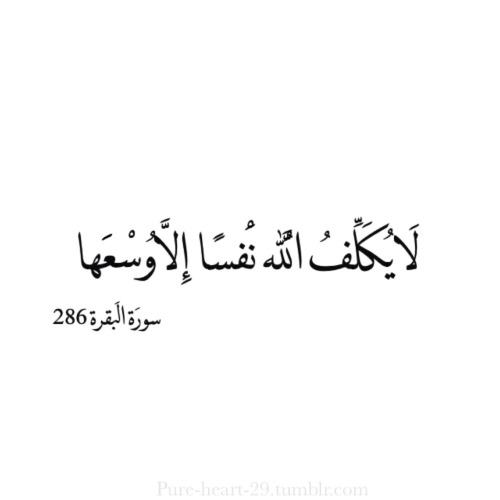 لَا يُكَلِّفُ اللَّه نُفسًا إِلاَّ وُسْعَها
سورَة الَبقرة 286
Pure-heart-29.tumblr.com